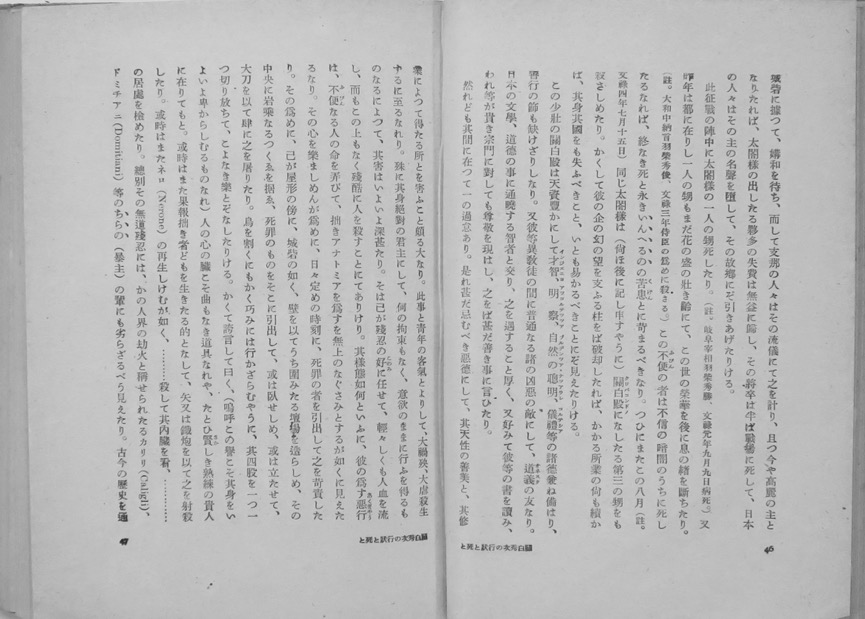 城砦に據つて、媾和を待ち、而して支那の人々はその流儀にて之を計り、且つ今や高麗の主と
なりたれば、太閤樣の出したる夥多の失費は無益に歸し、その將卒は半ば戰場に死して、日本
の人々はその主の名聲を墮して、その故鄕にぞ引きあげたりける。
此征戰の陣中に太閤樣の一人の甥死したり。(註。岐阜宰相羽柴秀勝、文祿元年九月九日病死。)又
昨年は都に在りし一人の甥もまだ花の盛の壯き齡にて、この世の榮華を後に息の緖を斷ちたり。
(註。大和中納言羽柴秀俊、文祿三年侍臣の爲めに殺さる。)この不便の者は不信の暗闇のうちに死し
たるなれば、終なき死と永きいんへるのの苦患にと苛まるべきなり。つひにまたこの八月(註。
文祿四年七月十五日)同じ太閤樣は(尙ほ後に記し申すやうに)關白殿になしたる第三の甥をも
寂さしめたり。かくして彼の企の幻の望を支ふる柱をば破却したれば、かかる所業の尙も續か
ば、其身其國をも失ふべきこと、いとも易かるべきことにぞ見えたりける。
この少壯の關白殿は天資豐かにして才智、明察、自然の聰明、儀禮等の諸德兼ね備はり、
善行の節も缺けざりしなり。又彼等異敎徒の間に普通なる諸の凶惡の敵にして、道義の友なり。
日本の文學、道德の事に通曉する智者と交り、之を遇すること厚く、又好みて彼等の書を讀み、
われ等が貴き宗門に對しても尊敬を現はし、之をば甚だ善き事に言ひたり。
然れども其間に在つて一の過怠あり。是れ甚だ忌むべき惡德にして、其天性の善美と、其修
46
關白秀次の行狀と死と
業によつて得たる所とを害ふこと頗る大なり。此事と靑年の客氣とよりして、大禍殃、大虐殺生
するに至るなれり。殊に其身絕對の君主にして、何の拘束もなく、意欲のままに行ふを得るも
のなるによつて、其害はいよいよ深甚たり。そは己が殘忍の好に任せて、輕々しくも人血を流
し、而もこの上もなく殘酷に人を殺すことにてありけり。其樣態如何といふに、彼の爲す惡行
は、不便なる人の命を弄びて、拙きアナトミアを爲すを無上のなぐさみとするが如くに見えた
るなり。その心を樂ましめんが爲めに、日々定めの時刻に、死罪の者を引出して之を苛責した
り。その爲めに、己が屋形の傍に、城砦の如く、壁を以てうち圍みたる壇場を造らしめ、その
中央に岩乘なるつくゑを据ゑ、死罪のものをそこに引出して、或は臥せしめ、或は立たせて、
大刀を以て肆に之を屠りたり。鳥を割くにもかく巧みには行かざらむやうに、其四股を一つ一
つ切り放ちて、こよなき樂とぞなしたりける。かくて誇言して曰く、(嗚呼この譽こそ其身をい
よいよ卑からしむるものなれ)人の心の臟こそ曲もなき道具なれや、たとひ賢しき熟練の貴人
に在りてもと。或時はまた果報拙き者どもを生きたる的となして、矢又は鐵炮を以て之を射殺
したり。或時はまたネロ(Nerone)の再生しけむが如く、………殺して其內臟を看、…………
の居處を檢めたり。總別その無道殘忍には、かの人界の劫火と稱せられたるカリリ(Caligli)、
ドミチアニ(Domitiani)等のちらの(暴主)の輩にも劣らざるべう見えたり。古今の歷史を通
關白秀次の行狀と死と
47